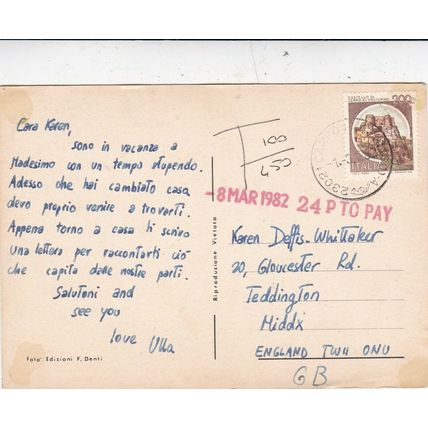 Cara Karen,
sono in vacanza a
Madesimo con un tempo stupendo.
Adesso che hai cambiato casa
devo proprio venire a trovarti.
Appena torno a casa ti scrivo
una lettera per raccontarti ciò
che capita dalle nostre parti.
Salutoni and
see you
love Ulla
Foto Edizioni F. Denti
Riproduzione Vietata
T 100
450
200
ITALIA
-8 MAR 1982 24 P TO PAY
Karen Deffis-Whittaker
20, Gloucester Rd.
Teddington
Middx
ENGLAND TW11 0NU
GB